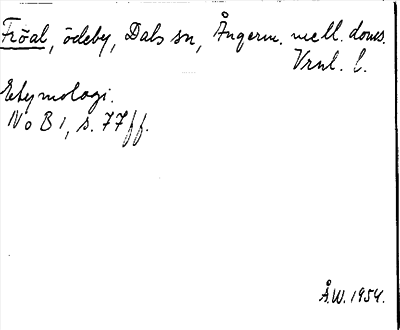 Fröal, ödeby, Dals sn, Ångerm. mell. doms.
Vrnl. l.
Etymologi.
NoB 1, s. 77 ff.
Å.W. 1954.